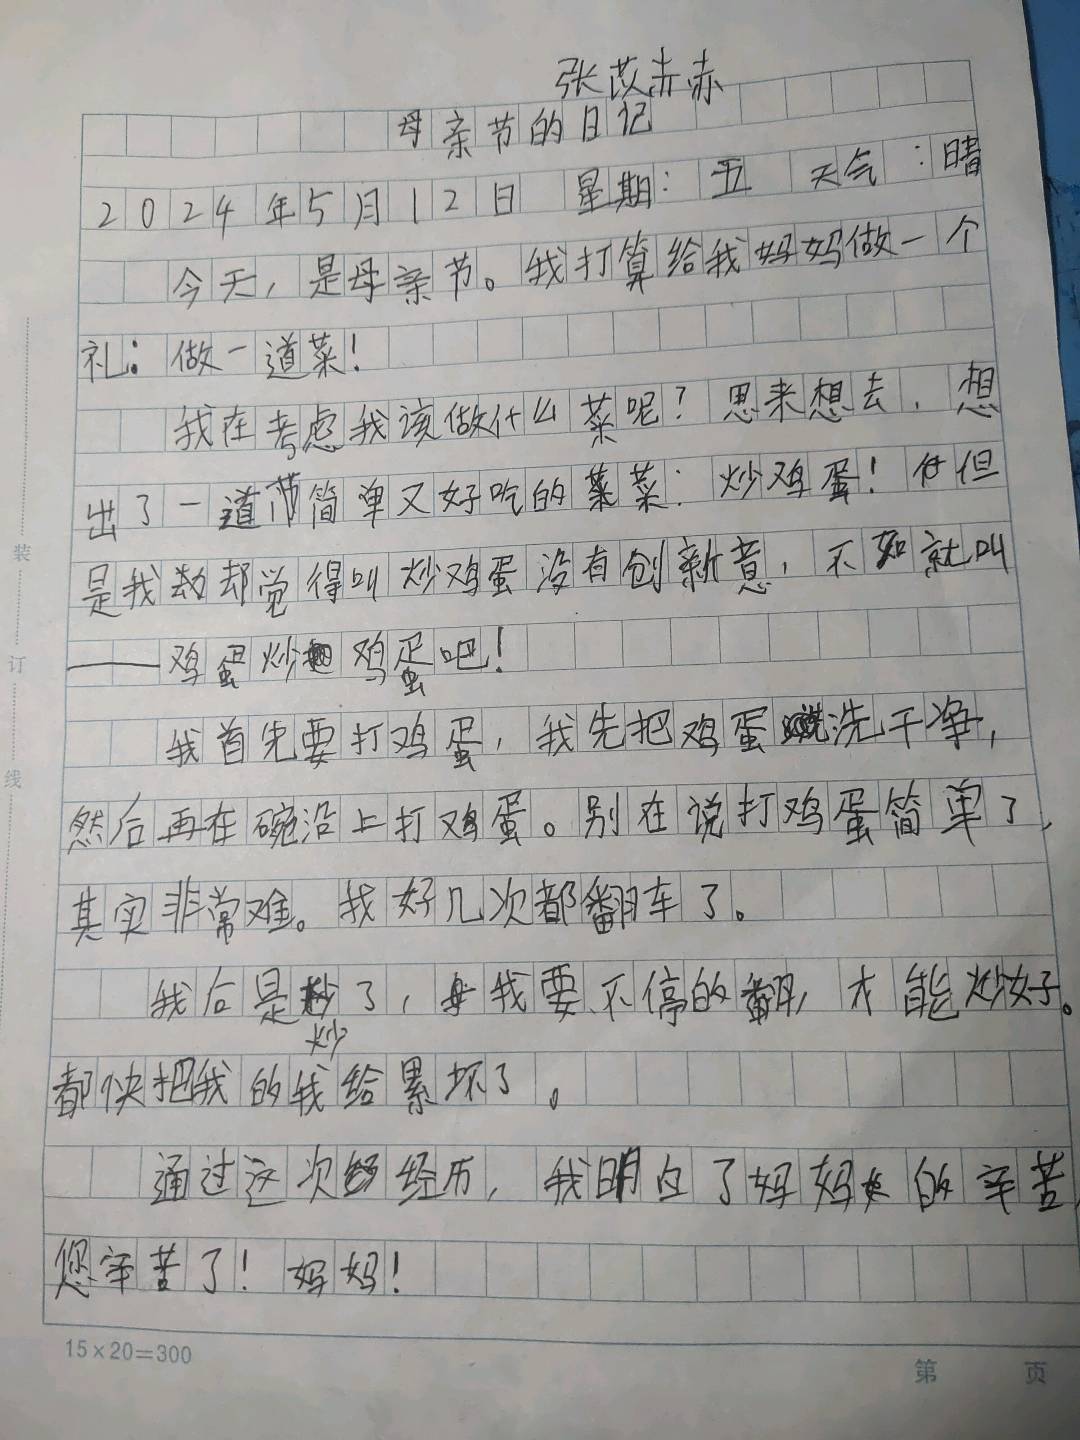 张苡赤赤
母亲节的日记
2024年5月12日 星期：五 天气：晴
今天，是母亲节。我打算给我妈妈做一个
礼：做一道菜！
我在考虑我该做什么菜呢？思来想去，想
出了一道简单又好吃的菜：炒鸡蛋！但
是我却觉得叫炒鸡蛋没有创新意，不如就叫
——鸡蛋炒鸡蛋吧！
我首先要打鸡蛋，我先把鸡蛋洗干净，
然后再在碗沿上打鸡蛋。别在说打鸡蛋简单了，
其实非常难。我好几次都翻车了。
我后是炒了，我要不停的翻，才能炒好。
都快把我的我给累坏了。
通过这次经历，我明白了妈妈的辛苦，
您辛苦了！妈妈！
装
订
线
15×20=300
第 页